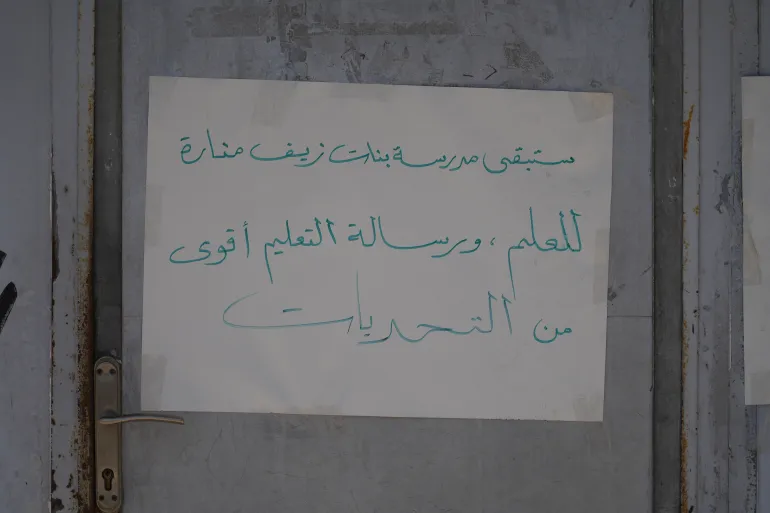 ستبقى مدرسة بنات زيف منارة
للعلم ، ورسالة التعليم أقوى
من التحديات